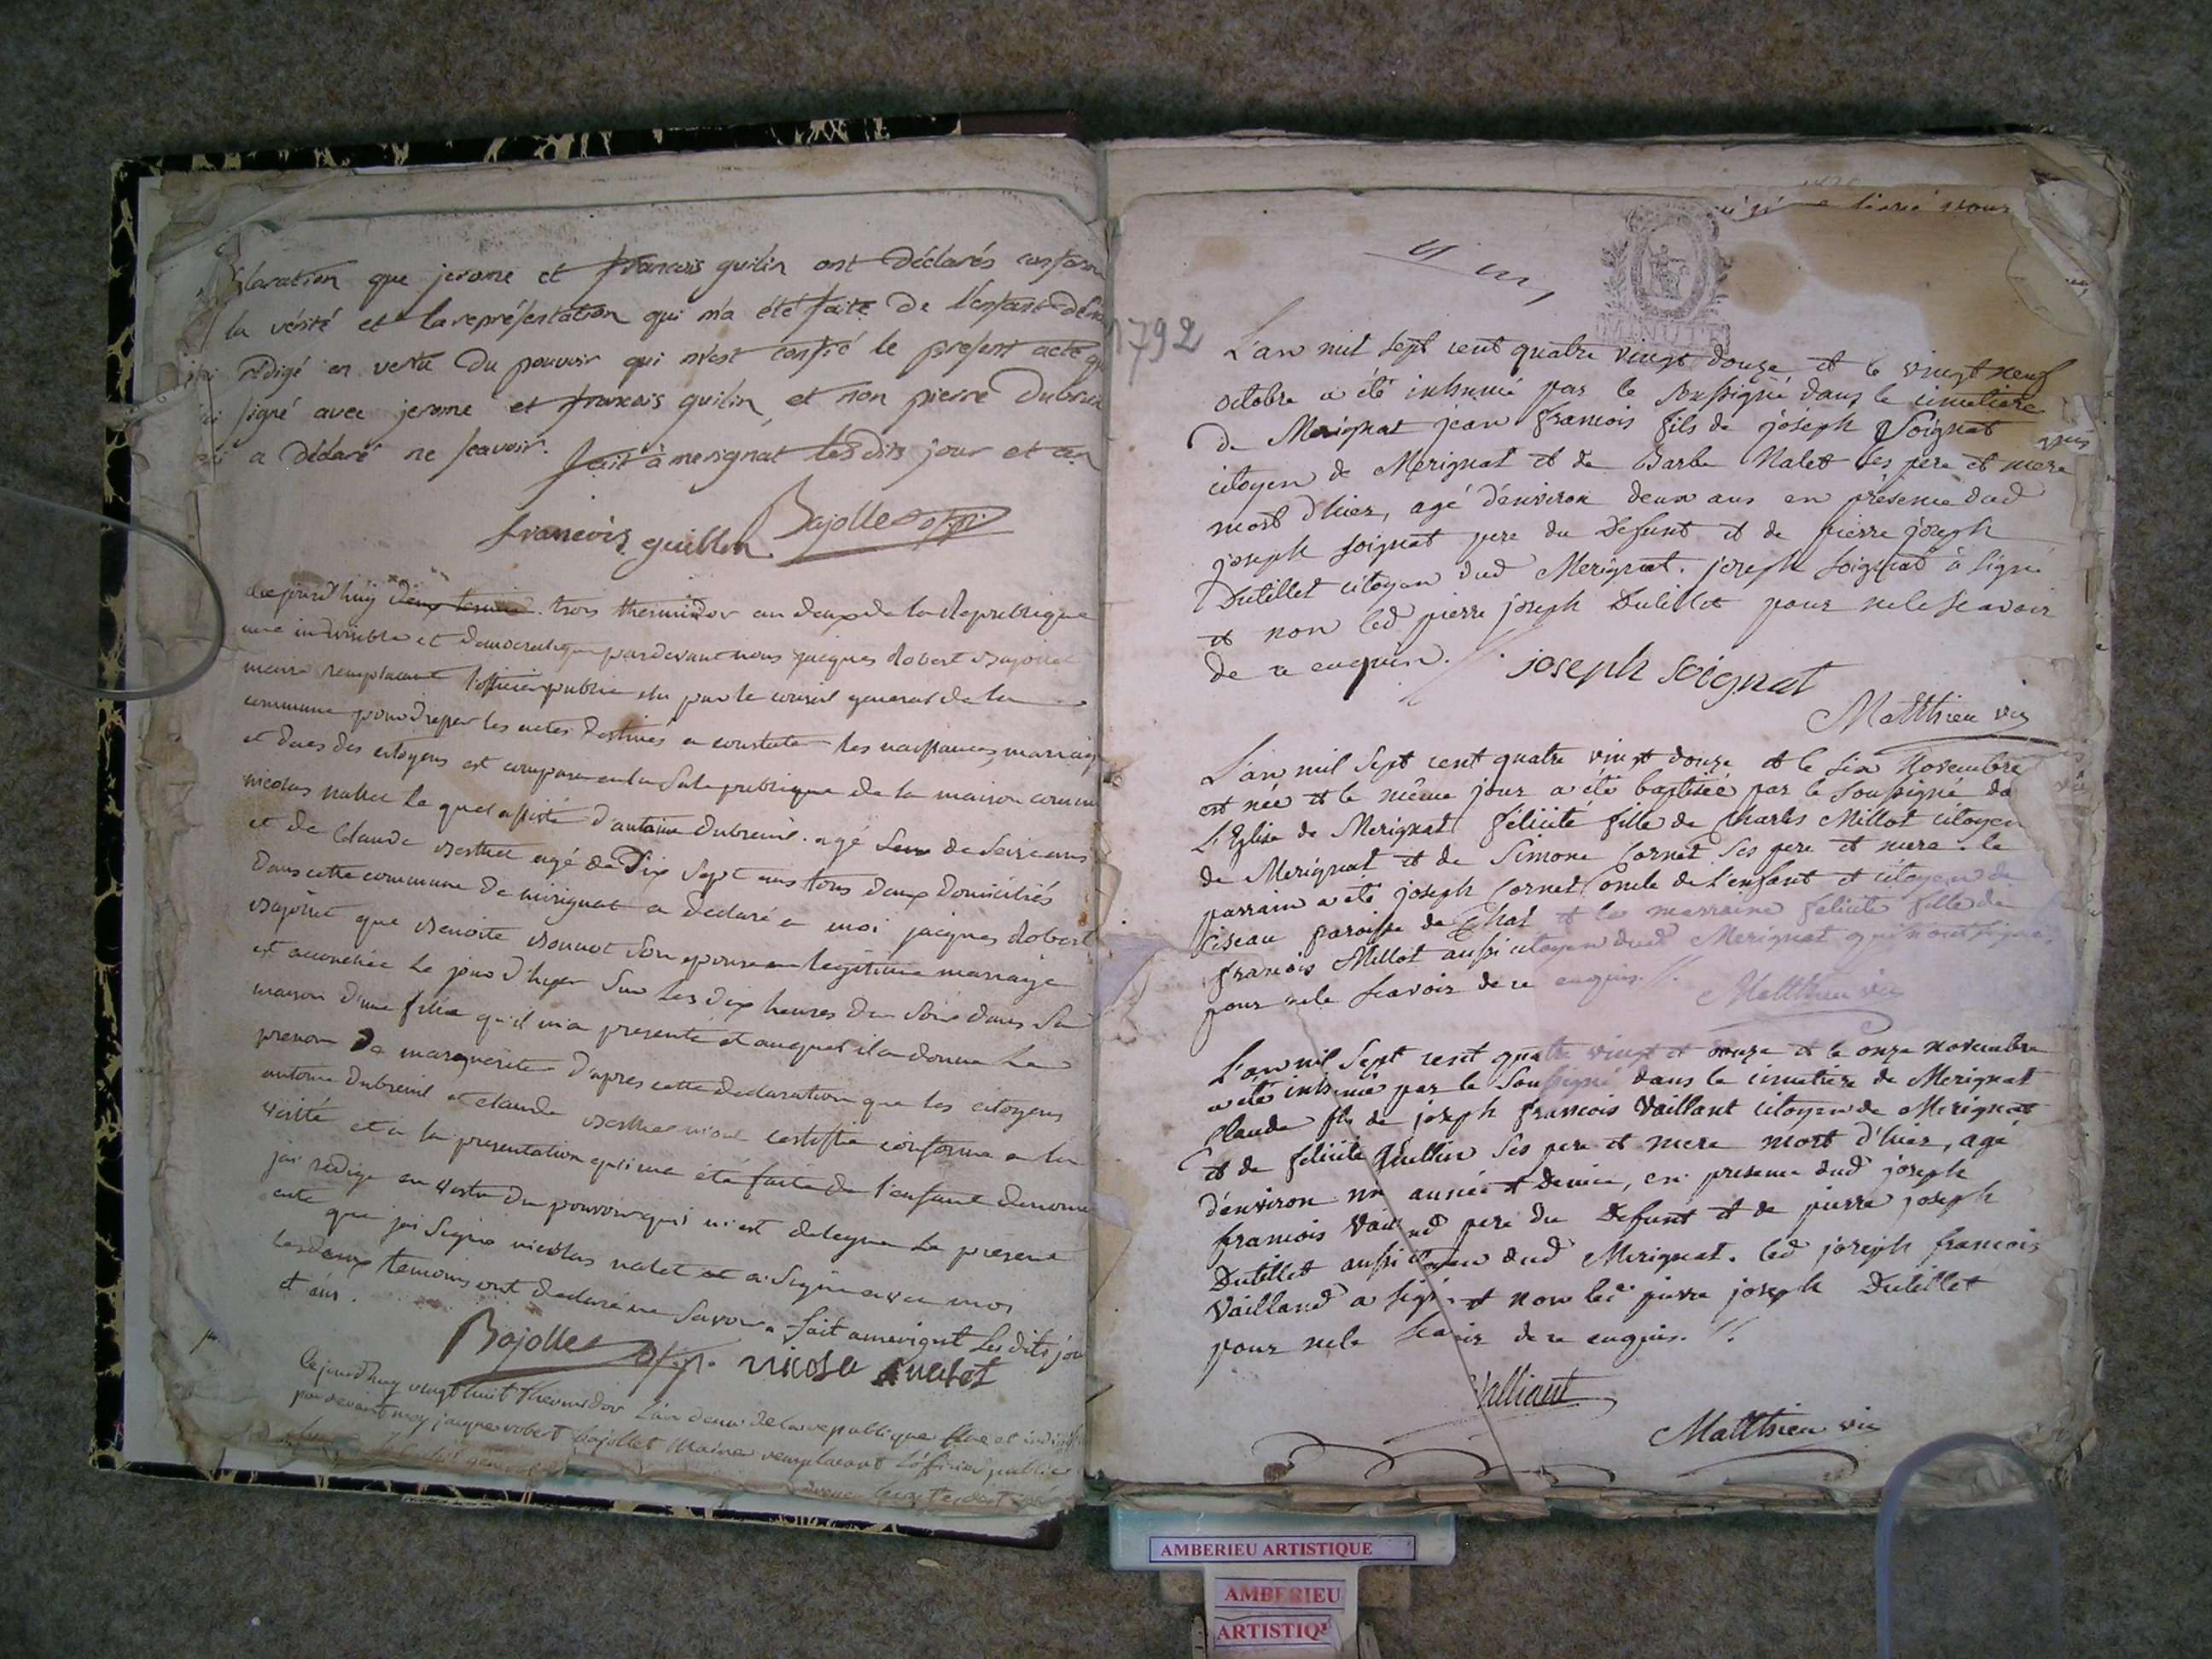 claration que jerome et francois guilin ont Déclarés conform
la vérité et la représentation qui m'a été faite De l'enfant
rédigé en vertu Du pouvoir qui m'est confié le présent acte
signé avec jerome et francois guilin, et non pierre Dubreu
a Déclaré ne scavoir. fait à merignat les dits jour et an
francois guillon Bajollet
aujourd'huy trois thermidor an deux de la Republique
une indivisible et democratique pardevant nous jacques Robert Bajollet
maire remplacant l'officier public elu par le conseil general de la
commune pour dresser les actes destinés a constater les naissances, mariages
et deces des citoyens est comparu en la Sale publique de la maison commu
nicolas nallet le quel assisté d'antoine dubreuil agé de Seize ans
et de Claude berthet agé de Dix Sept ans tous deux domiciliés
Dans cette commune De mérignat a declaré a moi jacques Robert
Bajollet que Benoite Bonnot Son epouse en legitime mariage
est accouchée le jour d'hyer Sur les dix heures du Soir dans Sa
maison d'une fille qu'il m'a presenté et auquel il a donné Le
prenom De marguerite D'apres cette declaration que les citoyens
antoine Dubreuil et claude berthet m'ont certiffié conforme a la
verité et a la presentation qui m'a été faite de l'enfant denomé
jai rédigé en vertu Du pouvoir qui m'est delegué Le present
acte que jai Signé nicolas nalet a Signé avec moi
les deux temoins ont declaré ne Savoir. fait a merignat Les dits jour
et an.
Bajollet nicola nalet
Cejourd'huy vingt huit thermidor l'an deux de la republique une et indivis
par devant moy jacque robert bajollet Maire remplacant l'oficier public
1792
L'an mil sept cent quatre vingt douze et le vingt neuf
octobre a été inhumé par le soussigné dans le cimetiere
de Merignat jean francois fils de joseph Soignat
citoyen de Merignat et de Barbe Nalet ses pere et mere
mort d'hier, agé d'environ deux ans en présence dud
joseph soignat pere du Defunt et de pierre joseph
Dutillet citoyen dud Merignat. joseph soignat à signé
et non led pierre joseph Dutillet pour ne le scavoir
de ce enquis. //. joseph soignat
Matthieu vic
L'an mil Sept cent quatre vingt douze et le six Novembre
est née et le même jour a été baptisée par le soussigné da
L'Eglise de Merignat félicité fille de Charles Millot citoyen
de Merignat et de Simone Cornet Ses pere et mere. le
parrain a été joseph Cornet oncle de l'enfant et citoyen de
Ciseau paroisse de Chal et la marraine felicité fille de
francois Millot aussi citoyen dud Merignat qui n'ont signé
pour ne le scavoir de ce enquis. //.
Matthieu vic
L'an mil Sept cent quatre vingt et douze et le onze novembre
a été inhumé par le Soussigné dans le cimetiere de Merignat
Claude fils de joseph francois Vaillant citoyen de Merignat
et de felicité Quillin Ses pere et mere mort d'hier, agé
d'environ un année et demie, en presence dud joseph
francois Vail nd pere du Defunt et de pierre joseph
Dutillet aussi citoyen dud Merignat. led joseph francois
Vailland a signé et non led pierre joseph Dutillet
pour ne le scavoir de ce enquis. //.
Valliant
Matthieu vic
AMBERIEU ARTISTIQUE
AMBERIEU
ARTISTIQ